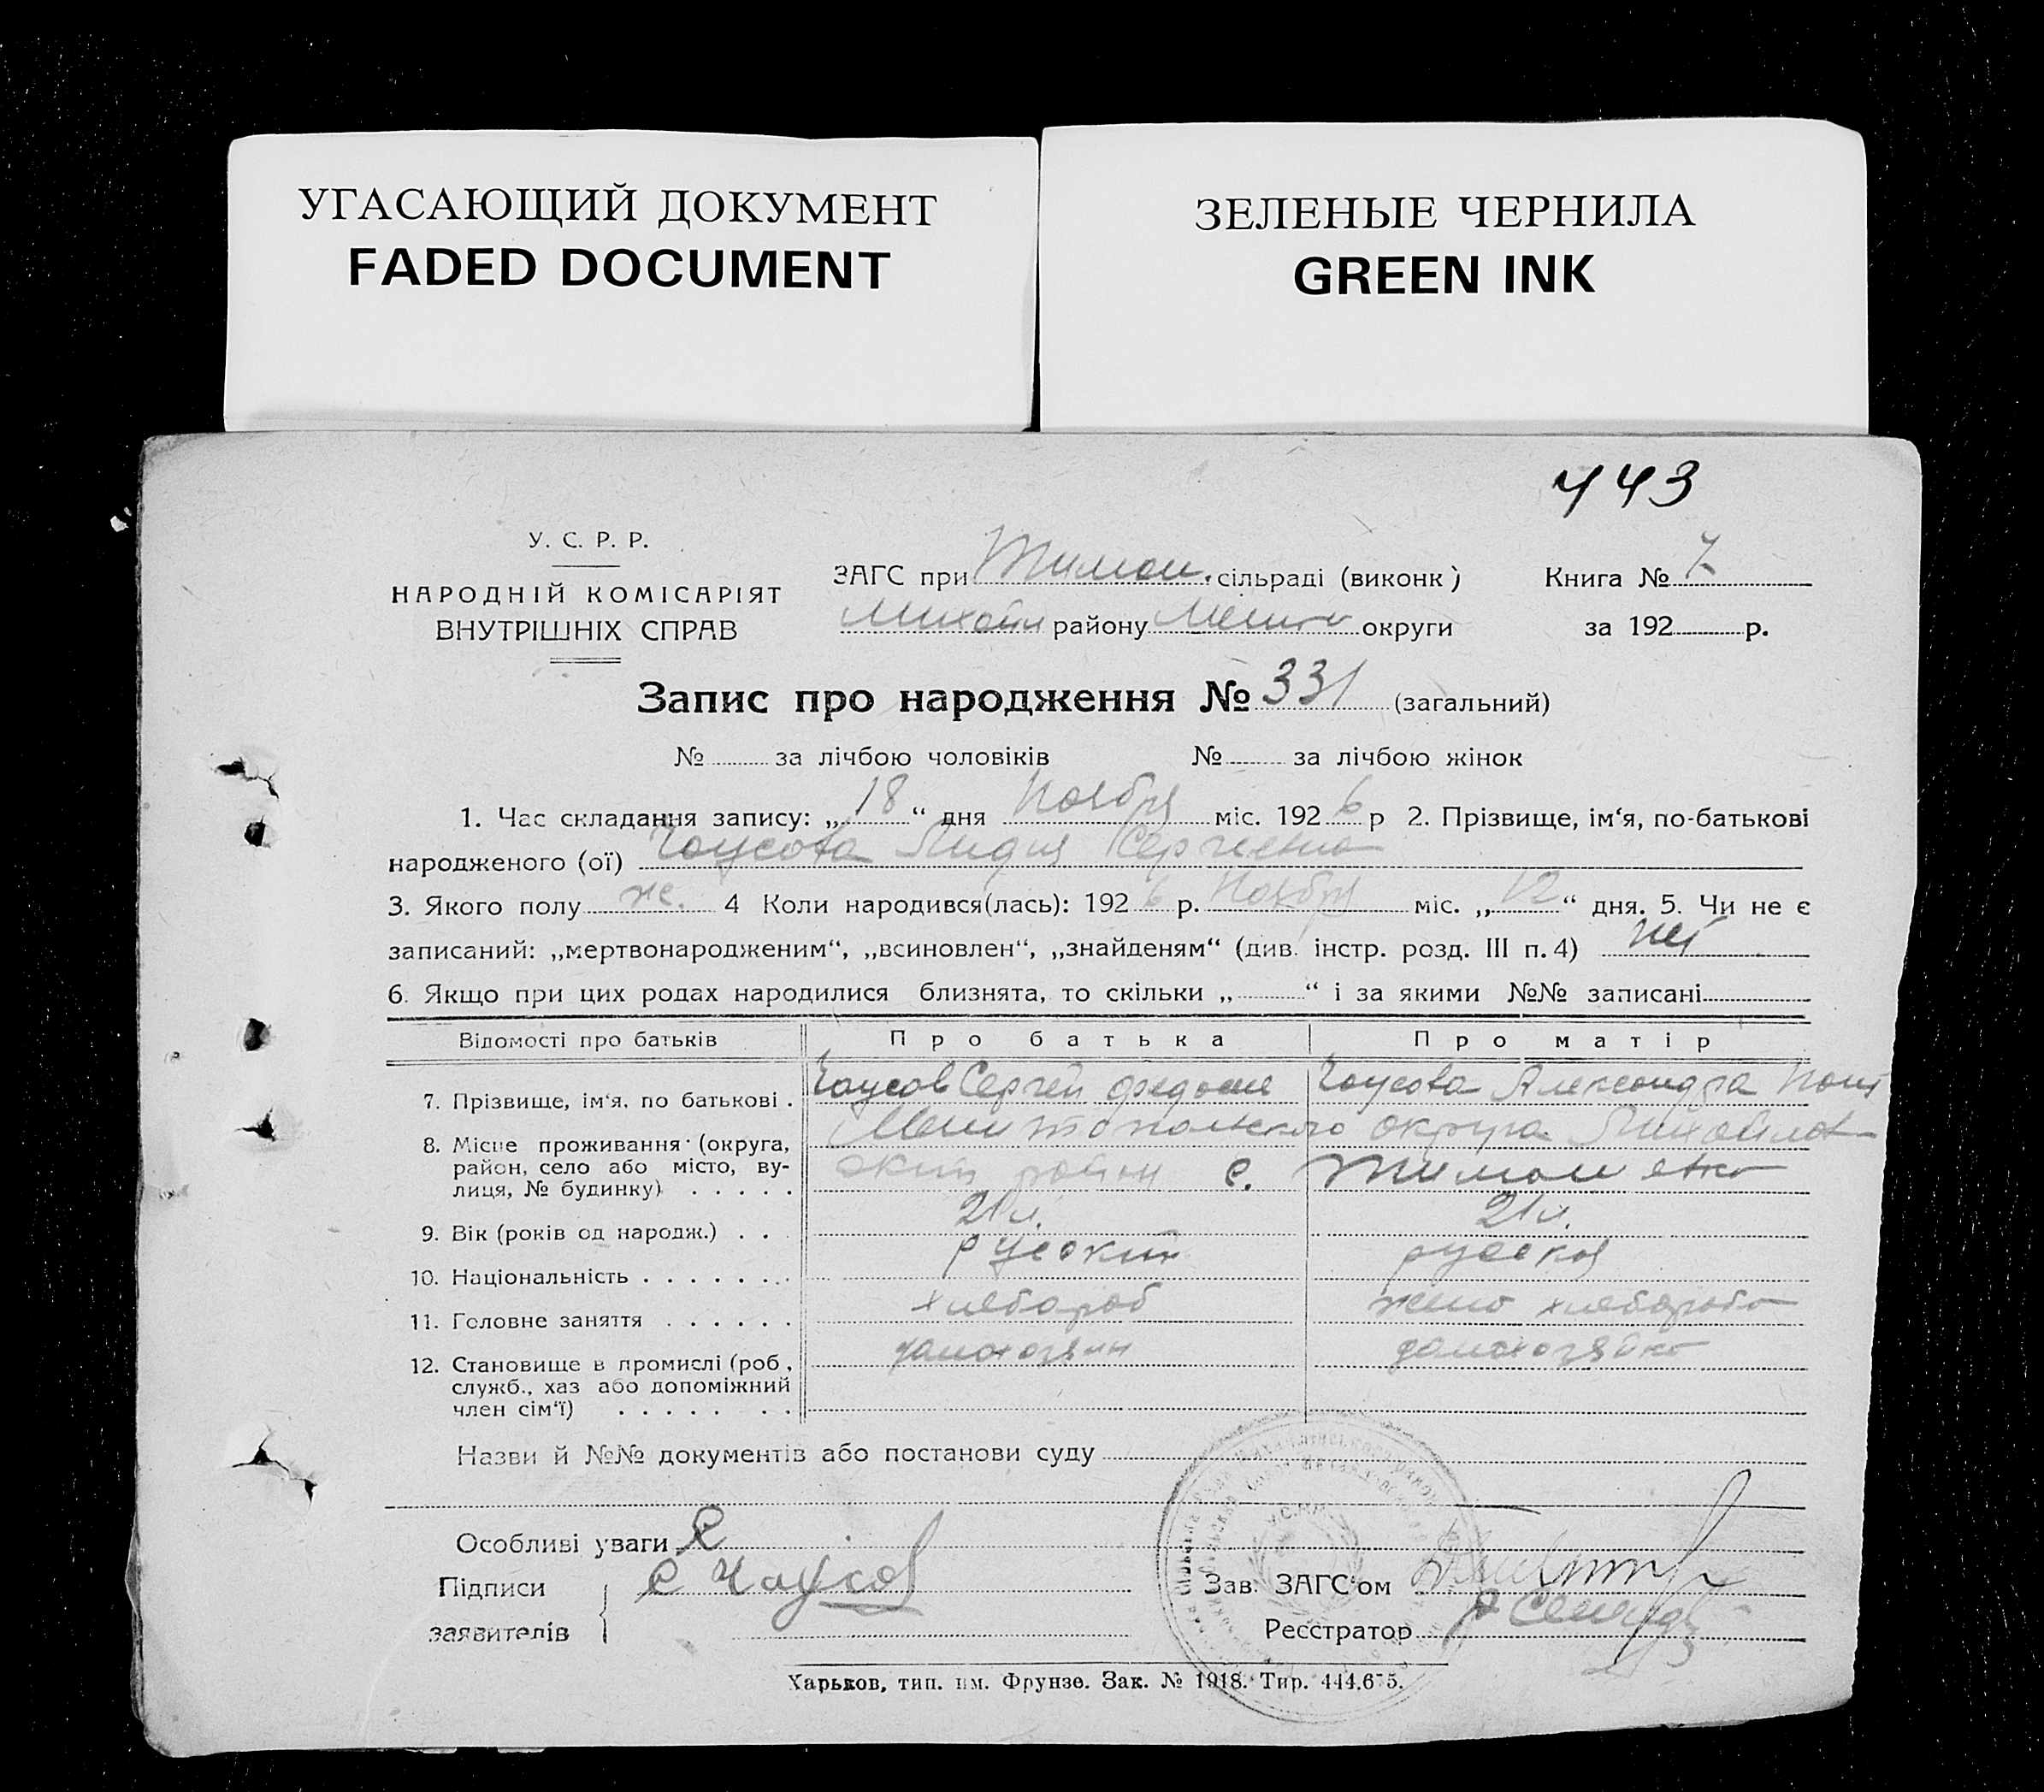 УГАСАЮЩИЙ ДОКУМЕНТ
FADED DOCUMENT
ЗЕЛЕНЫЕ ЧЕРНИЛА
GREEN INK
443
У. С. Р. Р.
НАРОДНІЙ КОМІСАРІЯТ
ВНУТРІШНІХ СПРАВ
ЗАГС при Тимош. сільраді (виконк)
Михайл району Мелит округи
Книга № 7
за 192 р.
Запис про народження № 331 (загальний)
№ за лічбою чоловіків № за лічбою жінок
1. Час складання запису: „18“ дня Ноября міс. 1926 р 2. Прізвище, ім‘я, по-батькові
народженого (ої) Чаусова Лидия Сергеевна
3. Якого полу же. 4 Коли народився(лась): 1926 р. Ноября міс. „12“ дня. 5. Чи не є
записаний: „мертвонародженим“, „всиновлен“, „знайденям“ (див. інстр. розд. III п. 4) нет
6. Якщо при цих родах народилися близнята, то скільки „ “ і за якими №№ записані
Відомості про батьків Про батька Про матір
7. Прізвище, ім‘я, по батькові . Чаусов Сергей Федосее Чаусова Александра
8. Місце проживання (округа, Мелитопольского округа Михайлов
район, село або місто, ву- ский район с. Тимошевка
лиця, № будинку) . . . . .
9. Вік (років од народж.) . . 21 л. 21 л.
10. Національність . . . . . . . русский русская
11. Головне заняття . . . . . . хлебороб жена хлебороба
12. Становище в промислі (роб, домохозяин домохозяйка
служб., хаз або допоміжний
член сім‘ї) . . . . . . .
Назви й №№ документів або постанови суду
Особливі уваги
Підписи С Чаусов
заявителів
Зав. ЗАГС‘ом
Реєстратор
Харьков, тип. им. Фрунзе. Зак. № 1918. Тир. 444.675.